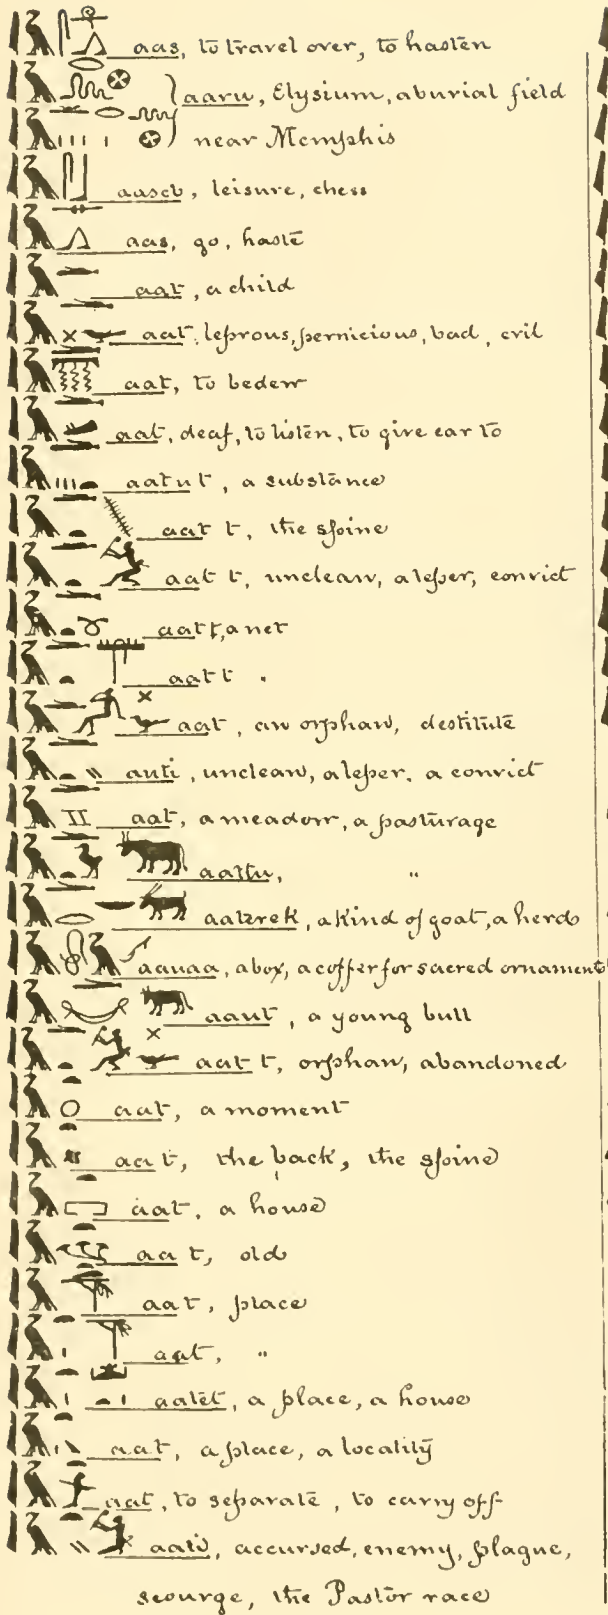 aas, to travel over, to hasten
aaru, Elysium, a burial field
near Memphis
aaseb, leisure, chess
aas, go, haste
aat, a child
aat, leprous, pernicious, bad, evil
aat, to bedew
aat, deaf, to listen, to give ear to
aatut, a substance
aat t, the spine
aat t, unclean, a leper, convict
aat t, a net
aat t .
aat, an orphan, destitute
auti, unclean, a leper. a convict
aat, a meadow, a pasturage
aattu, "
aatrek, a kind of goat, a herd
aauaa, a box, a coffer for sacred ornament
aaut, a young bull
aat t, orphan, abandoned
aat, a moment
aat, the back, the spine
aat, a house
aat, old
aat, place
aat, "
aatet, a place, a house
aat, a place, a locality
aat, to separate, to carry off
aati, accursed, enemy, plague,
scourge, the Pastor race